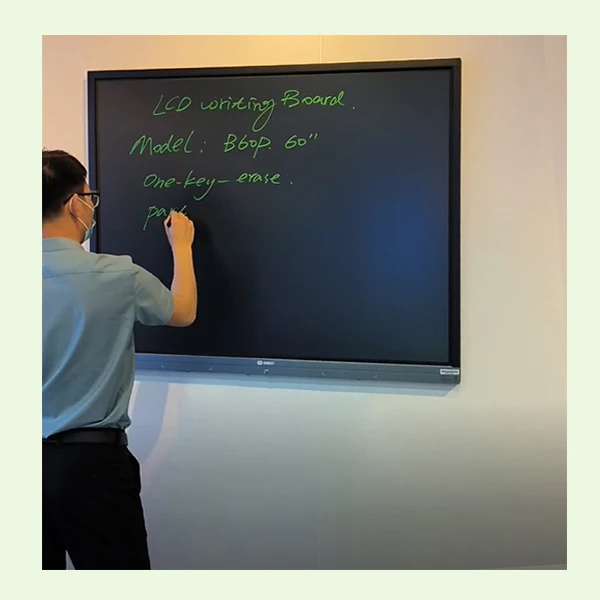 LCD writing Board.
Model: B60P. 60"
One-key-erase.